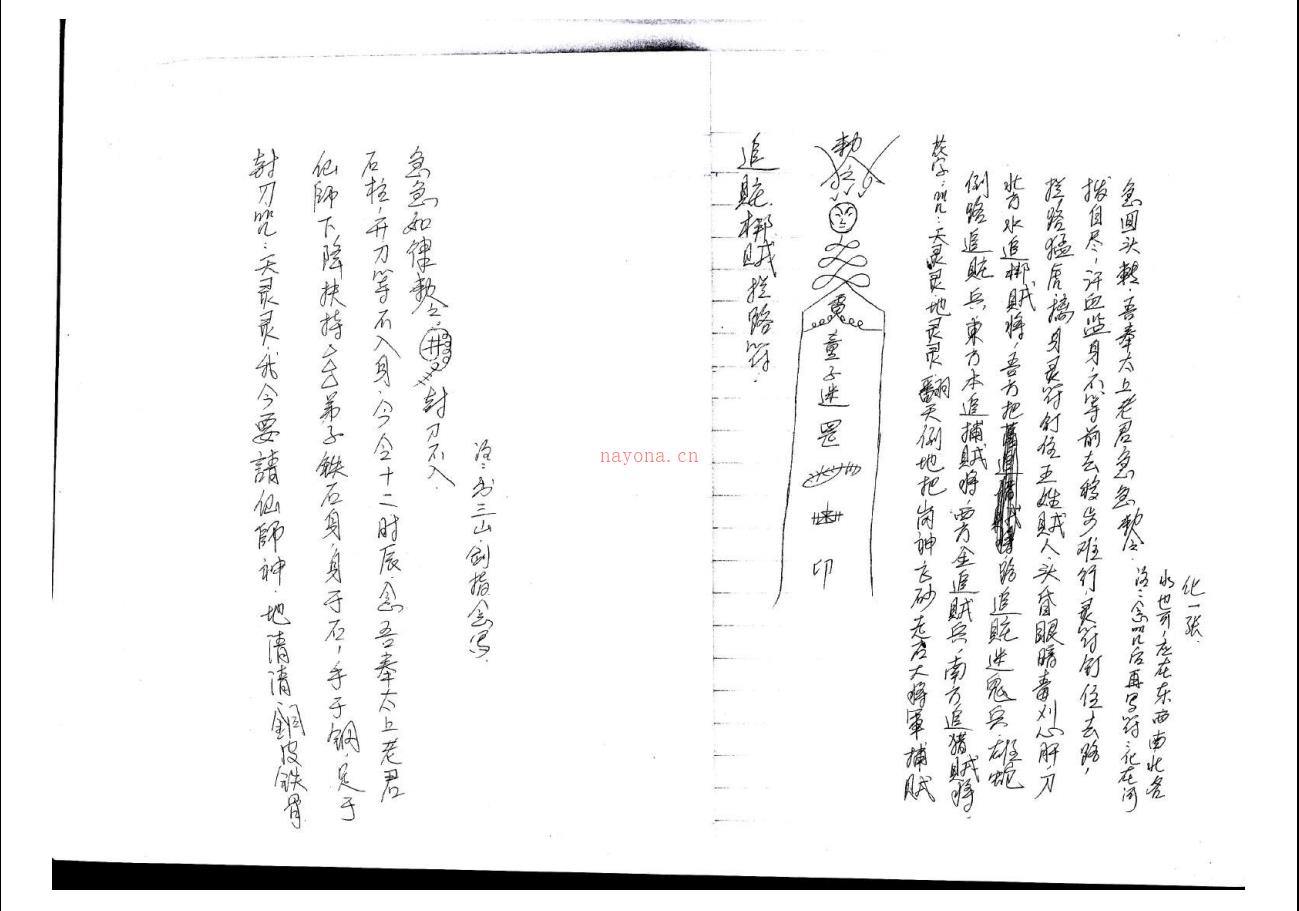 封刀咒：天灵灵，我今要請仙師神，地清清，銅皮鉄骨
仙師下降扶持弟子鉄石身，身于石，手于鋼，足于
石柱，开刀等不入身，今今十二时辰，念吾奉太上老君
急急如律敕令。井 封刀不入。
注：书三山剑指念写
追賍梆賊拦路符.
敕令
童子迷罡
印
字咒：天灵灵地灵灵翻天倒地把崗神飞砂走石大將軍捕賊
倒路追賍兵，東方木追捕賊將，西方金追賊兵，南方追猎賊將，
北方水追梆賊將，吾方把路追賍迷鬼兵，雄蛇
拦路猛虎擒身灵符钉住王姓賊人，头昏眼暗毒刈心肝，刀
拔自尽，汗血监身，不等前去移步难行，灵符钉住去路，
急回头，吾奉太上老君急急敕令。
注：念咒后再写符，化在河
水也可，应在东西南北各
化一张.
nayona.cn